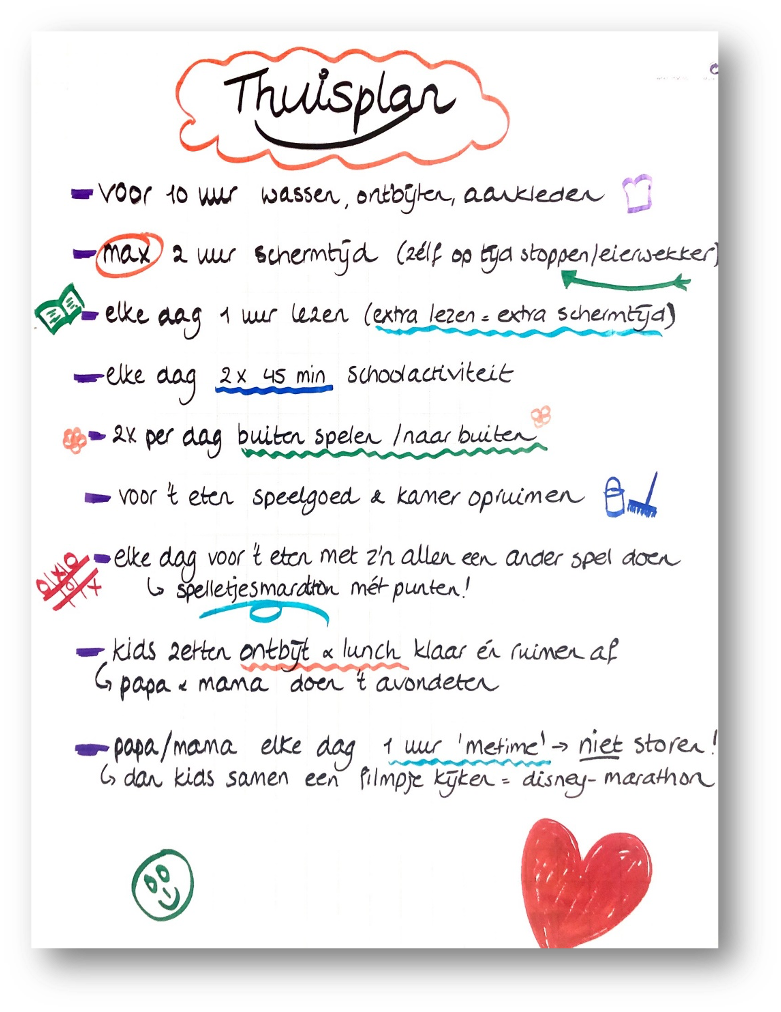 Thuisplan
- voor 10 uur wassen, ontbijten, aankleden
- max 2 uur schermtijd (zélf op tijd stoppen/eierwekker)
- elke dag 1 uur lezen (extra lezen = extra schermtijd)
- elke dag 2x 45 min schoolactiviteit
- 2x per dag buiten spelen / naar buiten
- voor 't eten speelgoed & kamer opruimen
- elke dag voor 't eten met z'n allen een ander spel doen
↳ spelletjesmarathon mét punten!
- kids zetten ontbijt & lunch klaar én ruimen af
↳ papa & mama doen 't avondeten
- papa/mama elke dag 1 uur 'metime' → niet storen!
↳ dan kids samen een filmpje kijken = disney-marathon